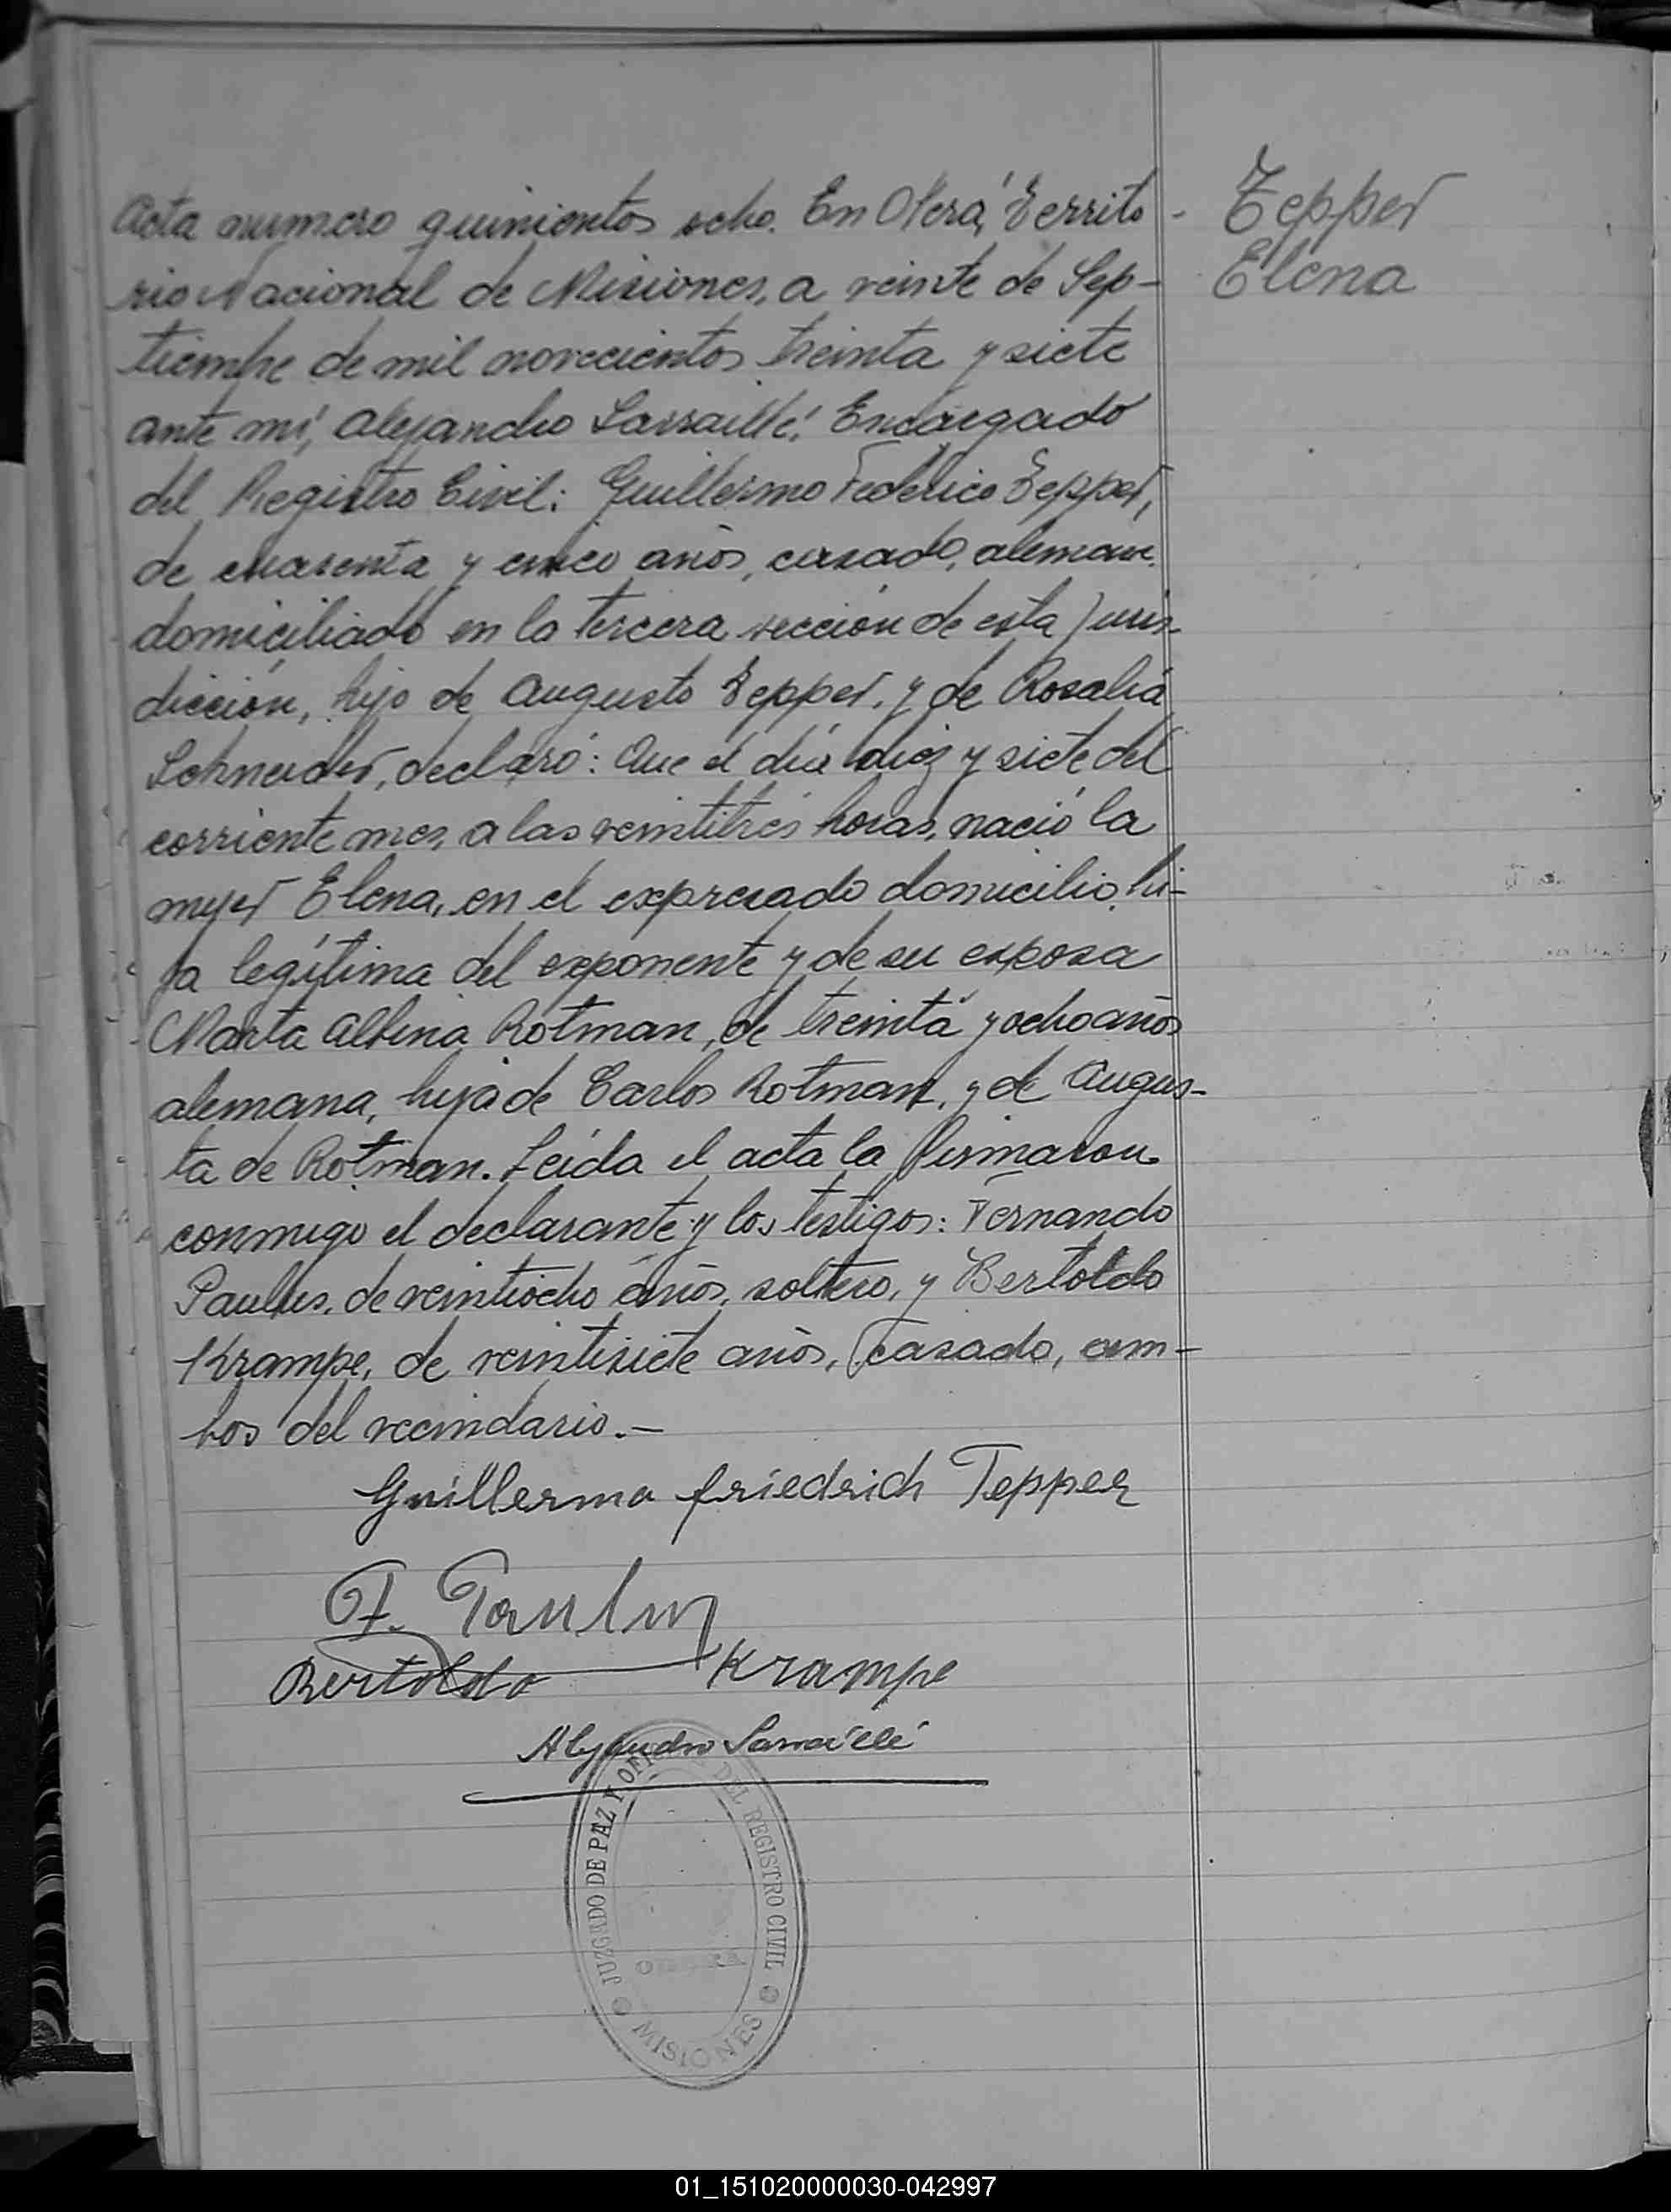 Acta numero quinientos ocho. En Oberá, Territo-
rio Nacional de Misiones, a veinte de Sep-
tiembre de mil novecientos treinta y siete
ante mí, Alejandro Sarraillé, Encargado
del Registro Civil: Guillermo Federico Tepper,
de cuarenta y cinco años, casado, aleman
domiciliado en la tercera sección de esta juris-
dicción, hijo de Augusto Tepper, y de Rosalia
Schneider, declaró: Que el día diez y siete del
corriente mes, a las veintitrés horas, nació la
mujer Elena, en el expresado domicilio, hi-
ja legítima del exponente y de su esposa
Marta Albina Rotman, de treinta y ocho años
alemana, hija de Carlos Rotman, y de Augus-
ta de Rotman. Leída el acta la firmaron
conmigo el declarante y los testigos: Fernando
Paulus, de veintiocho años, soltero, y Bertoldo
Krampe, de veintisiete años, casado, am-
bos del vecindario.—
Tepper
Elena
Guillermo friedrich Tepper
F. Paulus
Bertoldo Krampe
Alejandro Sarraillé
JUZGADO DE PAZ Y OFICINA DEL REGISTRO CIVIL
MISIONES
01_151020000030-042997